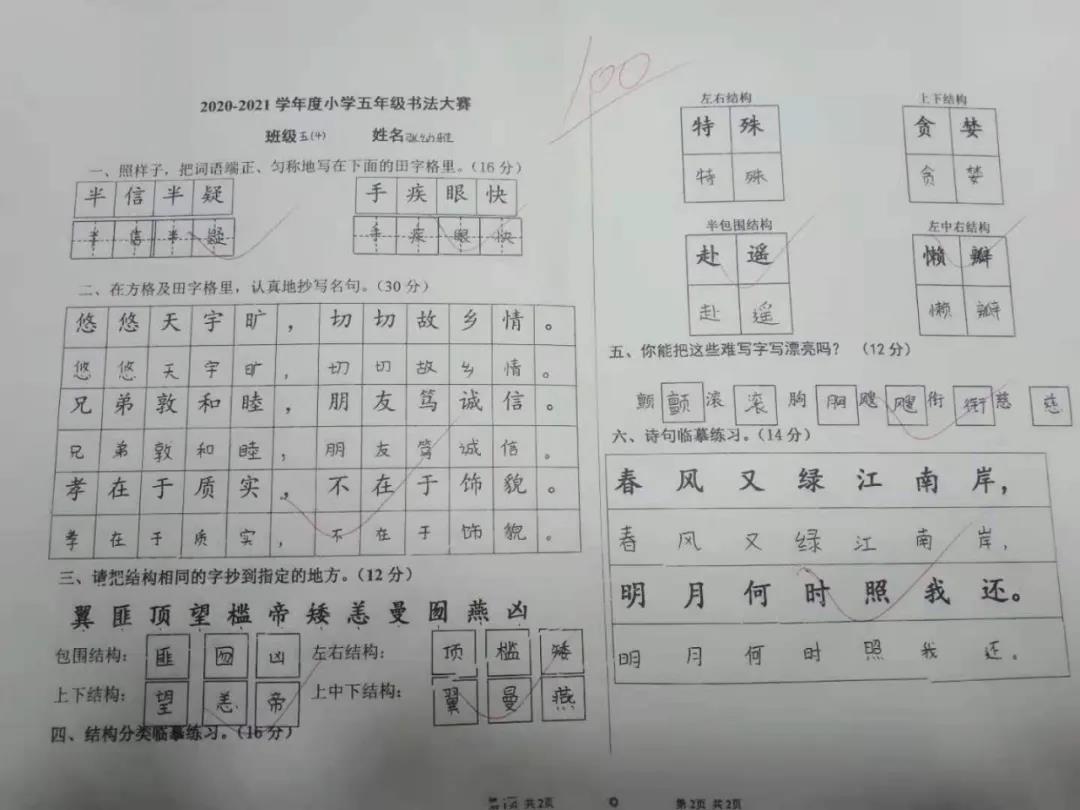 2020-2021 学年度小学五年级书法大赛
班级五(4) 姓名张幼雅
一、照样子，把词语端正、匀称地写在下面的田字格里。(16 分)
半信半疑 手疾眼快
半信半疑 手疾眼快
二、在方格及田字格里，认真地抄写名句。(30 分)
悠悠天宇旷，切切故乡情。
悠悠天宇旷，切切故乡情。
兄弟敦和睦，朋友笃诚信。
兄弟敦和睦，朋友笃诚信。
孝在于质实，不在于饰貌。
孝在于质实，不在于饰貌。
三、请把结构相同的字抄到指定的地方。(12 分)
翼匪顶望槛帝矮恙曼囫燕凶
包围结构: 匪囫凶 左右结构: 顶槛矮
上下结构: 望恙帝 上中下结构: 翼曼燕
四、结构分类临摹练习。(16 分)
第1页 共2页
100
左右结构 上下结构
特殊 贪婪
特殊 贪婪
半包围结构 左中右结构
赴遥 懒瓣
赴遥 懒瓣
五、你能把这些难写字写漂亮吗？ (12 分)
颤 颤 滚 滚 胸 胸 飕 飕 衔 衔 慈 慈
六、诗句临摹练习。(14 分)
春风又绿江南岸，
春风又绿江南岸，
明月何时照我还。
明月何时照我还。
第2页 共2页